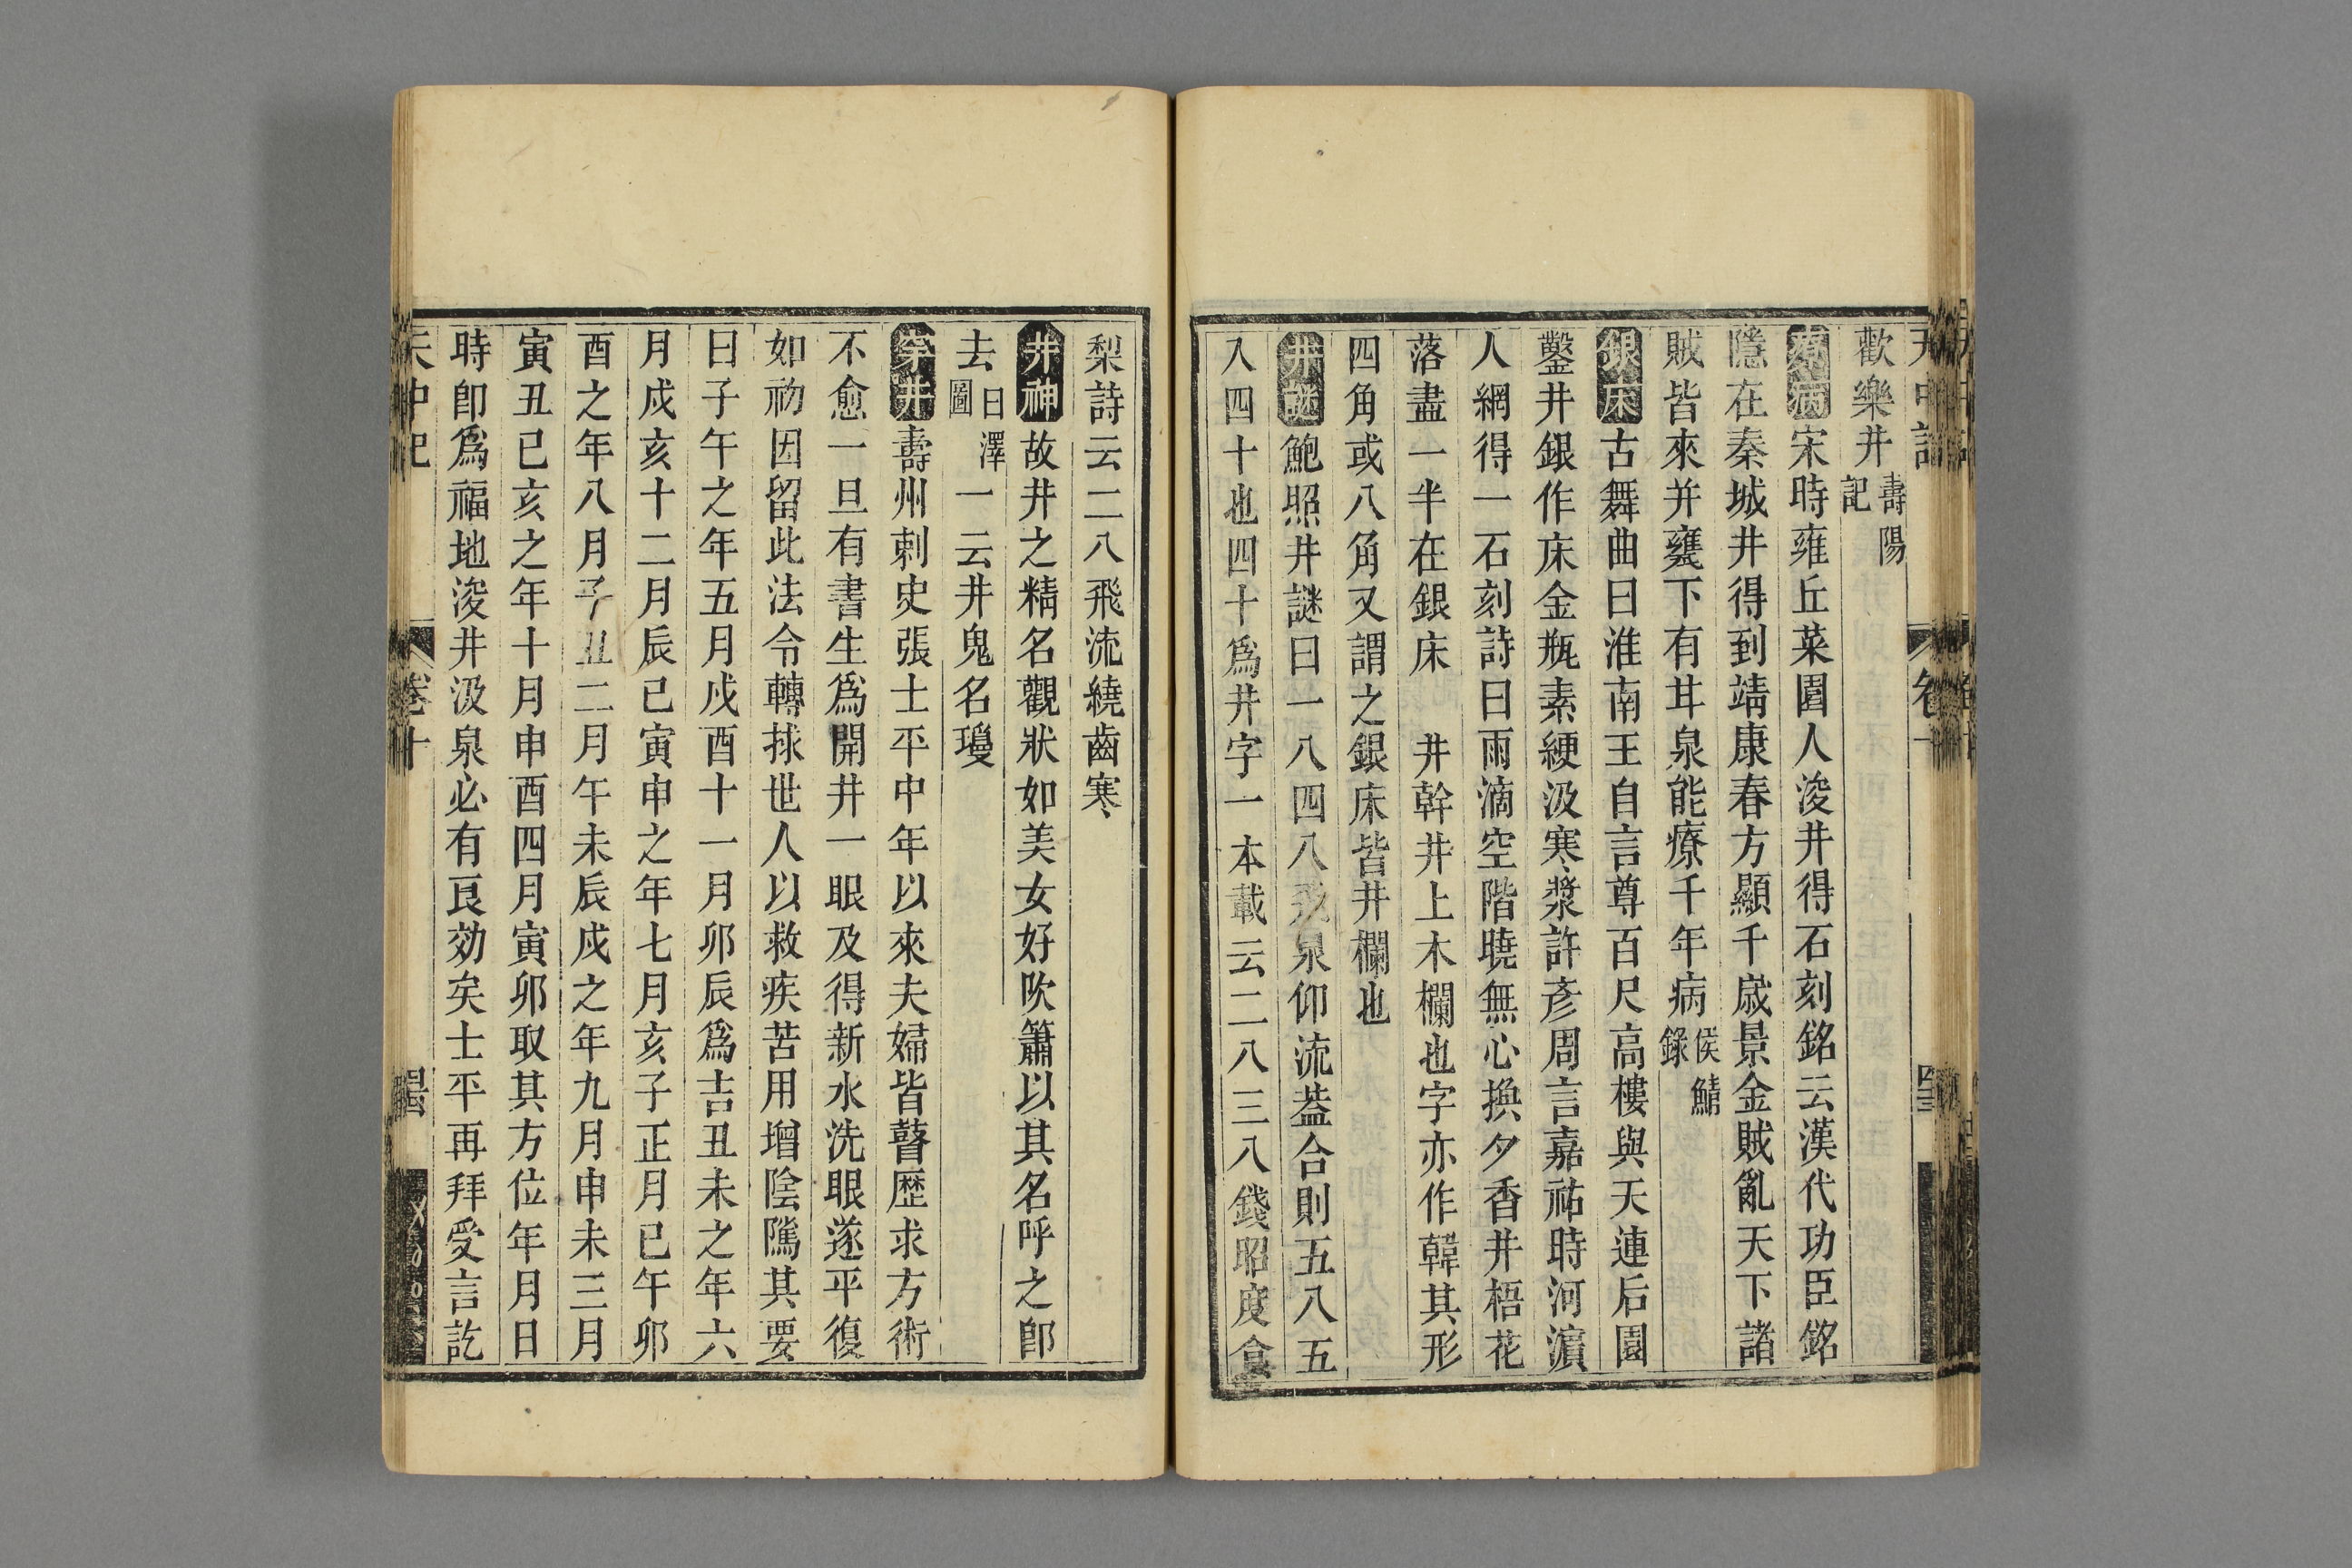 歡樂井壽陽記
療病宋時雍丘菜園人浚井得石刻銘云漢代功臣銘
隱在秦城井得到靖康春方顯千歲景金賊亂天下諸
賊皆來并甕下有甘泉能療千年病侯鯖錄
銀床古舞曲曰淮南王自言尊百尺高樓與天連后園
鑿井銀作床金瓶素綆汲寒漿許彥周言嘉祐時河濵
人網得一石刻詩曰雨滴空階曉無心換夕香井梧花
落盡一半在銀床　井幹井上木欄也字亦作韓其形
四角或八角又謂之銀床皆井欄也
井謎鮑照井謎曰一八四八飛泉仰流葢合則五八五
八四十也四十爲井字一本載云二八三八錢昭度食
梨詩云二八飛流繞齒寒
井神故井之精名觀狀如美女好吹簫以其名呼之卽
去白澤圖一云井鬼名瓊
穿井壽州刺史張士平中年以來夫婦皆瞽歷求方術
不愈一旦有書生爲開井一眼及得新水洗眼遂平復
如初因留此法令轉捄世人以救疾苦用增陰隲其要
曰子午之年五月戌酉十一月卯辰爲吉丑未之年六
月戌亥十二月辰巳寅申之年七月亥子正月巳午卯
酉之年八月子丑二月午未辰戌之年九月申未三月
寅丑巳亥之年十月申酉四月寅卯取其方位年月日
時卽爲福地浚井汲泉必有良効矣士平再拜受言訖
天中記
卷十